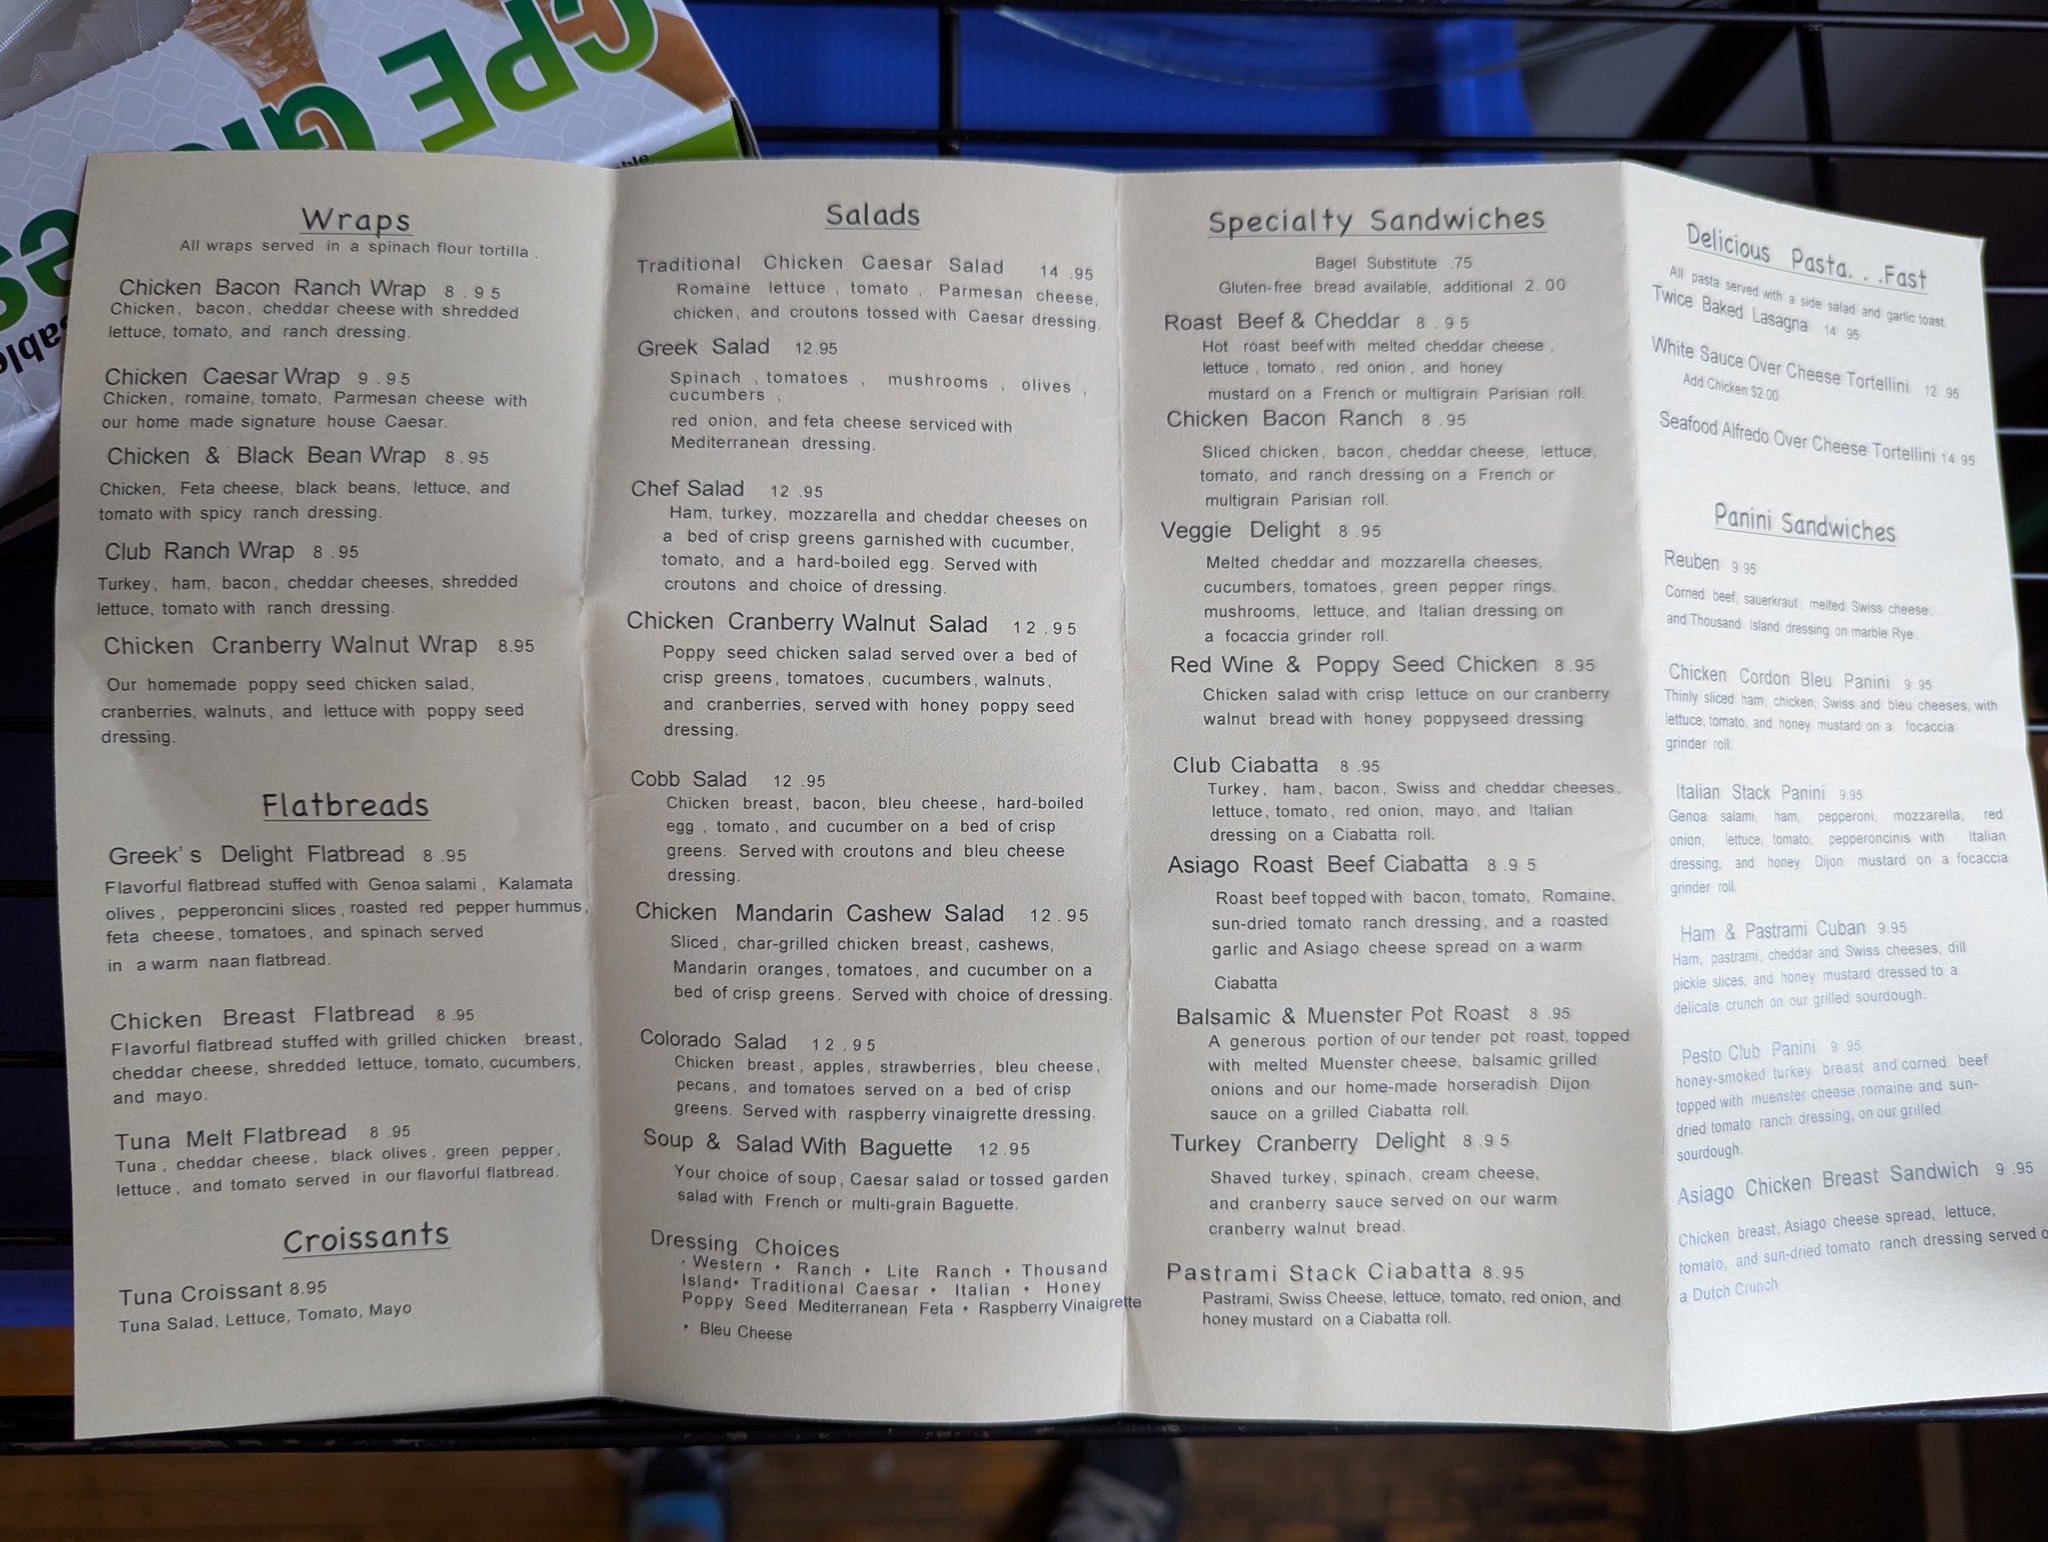 CPE Gl
able
Wraps
All wraps served in a spinach flour tortilla .
Chicken Bacon Ranch Wrap 8 . 9 5
Chicken, bacon, cheddar cheese with shredded
lettuce, tomato, and ranch dressing.
Chicken Caesar Wrap 9 . 9 5
Chicken, romaine, tomato, Parmesan cheese with
our home made signature house Caesar.
Chicken & Black Bean Wrap 8 .95
Chicken, Feta cheese, black beans, lettuce, and
tomato with spicy ranch dressing.
Club Ranch Wrap 8 .95
Turkey, ham, bacon, cheddar cheeses, shredded
lettuce, tomato with ranch dressing.
Chicken Cranberry Walnut Wrap 8.95
Our homemade poppy seed chicken salad,
cranberries, walnuts, and lettuce with poppy seed
dressing.
Flatbreads
Greek's Delight Flatbread 8 .95
Flavorful flatbread stuffed with Genoa salami , Kalamata
olives , pepperoncini slices , roasted red pepper hummus,
feta cheese, tomatoes, and spinach served
in a warm naan flatbread.
Chicken Breast Flatbread 8 .95
Flavorful flatbread stuffed with grilled chicken breast,
cheddar cheese, shredded lettuce, tomato, cucumbers,
and mayo.
Tuna Melt Flatbread 8 .95
Tuna , cheddar cheese, black olives, green pepper,
lettuce, and tomato served in our flavorful flatbread.
Croissants
Tuna Croissant 8.95
Tuna Salad, Lettuce, Tomato, Mayo
Salads
Traditional Chicken Caesar Salad 14 .95
Romaine lettuce , tomato , Parmesan cheese,
chicken, and croutons tossed with Caesar dressing.
Greek Salad 12.95
Spinach , tomatoes , mushrooms , olives ,
cucumbers ,
red onion, and feta cheese serviced with
Mediterranean dressing.
Chef Salad 12 .95
Ham, turkey, mozzarella and cheddar cheeses on
a bed of crisp greens garnished with cucumber,
tomato, and a hard-boiled egg. Served with
croutons and choice of dressing.
Chicken Cranberry Walnut Salad 1 2 . 9 5
Poppy seed chicken salad served over a bed of
crisp greens, tomatoes, cucumbers, walnuts,
and cranberries, served with honey poppy seed
dressing.
Cobb Salad 12 .95
Chicken breast, bacon, bleu cheese, hard-boiled
egg , tomato , and cucumber on a bed of crisp
greens. Served with croutons and bleu cheese
dressing.
Chicken Mandarin Cashew Salad 12.95
Sliced, char-grilled chicken breast, cashews,
Mandarin oranges, tomatoes, and cucumber on a
bed of crisp greens. Served with choice of dressing.
Colorado Salad 12.95
Chicken breast, apples, strawberries, bleu cheese,
pecans, and tomatoes served on a bed of crisp
greens. Served with raspberry vinaigrette dressing.
Soup & Salad With Baguette 12.95
Your choice of soup, Caesar salad or tossed garden
salad with French or multi-grain Baguette.
Dressing Choices
• Western • Ranch • Lite Ranch • Thousand
Island• Traditional Caesar • Italian • Honey
Poppy Seed Mediterranean Feta • Raspberry Vinaigrette
• Bleu Cheese
Specialty Sandwiches
Bagel Substitute .75
Gluten-free bread available, additional 2.00
Roast Beef & Cheddar 8 . 9 5
Hot roast beef with melted cheddar cheese ,
lettuce , tomato , red onion , and honey
mustard on a French or multigrain Parisian roll.
Chicken Bacon Ranch 8 .95
Sliced chicken, bacon, cheddar cheese, lettuce,
tomato, and ranch dressing on a French or
multigrain Parisian roll.
Veggie Delight 8 .95
Melted cheddar and mozzarella cheeses,
cucumbers, tomatoes, green pepper rings,
mushrooms, lettuce, and Italian dressing on
a focaccia grinder roll.
Red Wine & Poppy Seed Chicken 8 .95
Chicken salad with crisp lettuce on our cranberry
walnut bread with honey poppyseed dressing
Club Ciabatta 8 .95
Turkey, ham, bacon, Swiss and cheddar cheeses,
lettuce, tomato, red onion, mayo, and Italian
dressing on a Ciabatta roll.
Asiago Roast Beef Ciabatta 8 .9 5
Roast beef topped with bacon, tomato, Romaine,
sun-dried tomato ranch dressing, and a roasted
garlic and Asiago cheese spread on a warm
Ciabatta
Balsamic & Muenster Pot Roast 8 .95
A generous portion of our tender pot roast, topped
with melted Muenster cheese, balsamic grilled
onions and our home-made horseradish Dijon
sauce on a grilled Ciabatta roll.
Turkey Cranberry Delight 8 .9 5
Shaved turkey, spinach, cream cheese,
and cranberry sauce served on our warm
cranberry walnut bread.
Pastrami Stack Ciabatta 8.95
Pastrami, Swiss Cheese, lettuce, tomato, red onion, and
honey mustard on a Ciabatta roll.
Delicious Pasta. . .Fast
All pasta served with a side salad and garlic toast.
Twice Baked Lasagna 14 .95
White Sauce Over Cheese Tortellini 12 .95
Add Chicken $2.00
Seafood Alfredo Over Cheese Tortellini 14 95
Panini Sandwiches
Reuben 9 95
Corned beef, sauerkraut, melted Swiss cheese,
and Thousand Island dressing on marble Rye.
Chicken Cordon Bleu Panini 9 .95
Thinly sliced ham, chicken, Swiss and bleu cheeses, with
lettuce, tomato, and honey mustard on a focaccia
grinder roll.
Italian Stack Panini 9.95
Genoa salami, ham, pepperoni, mozzarella, red
onion, lettuce, tomato, pepperoncinis with Italian
dressing, and honey Dijon mustard on a focaccia
grinder roll.
Ham & Pastrami Cuban 9.95
Ham, pastrami, cheddar and Swiss cheeses, dill
pickle slices, and honey mustard dressed to a
delicate crunch on our grilled sourdough.
Pesto Club Panini 9 .95
honey-smoked turkey breast and corned beef
topped with muenster cheese,romaine and sun-
dried tomato ranch dressing, on our grilled
sourdough.
Asiago Chicken Breast Sandwich 9 .95
Chicken breast, Asiago cheese spread, lettuce,
tomato, and sun-dried tomato ranch dressing served o
a Dutch Crunch